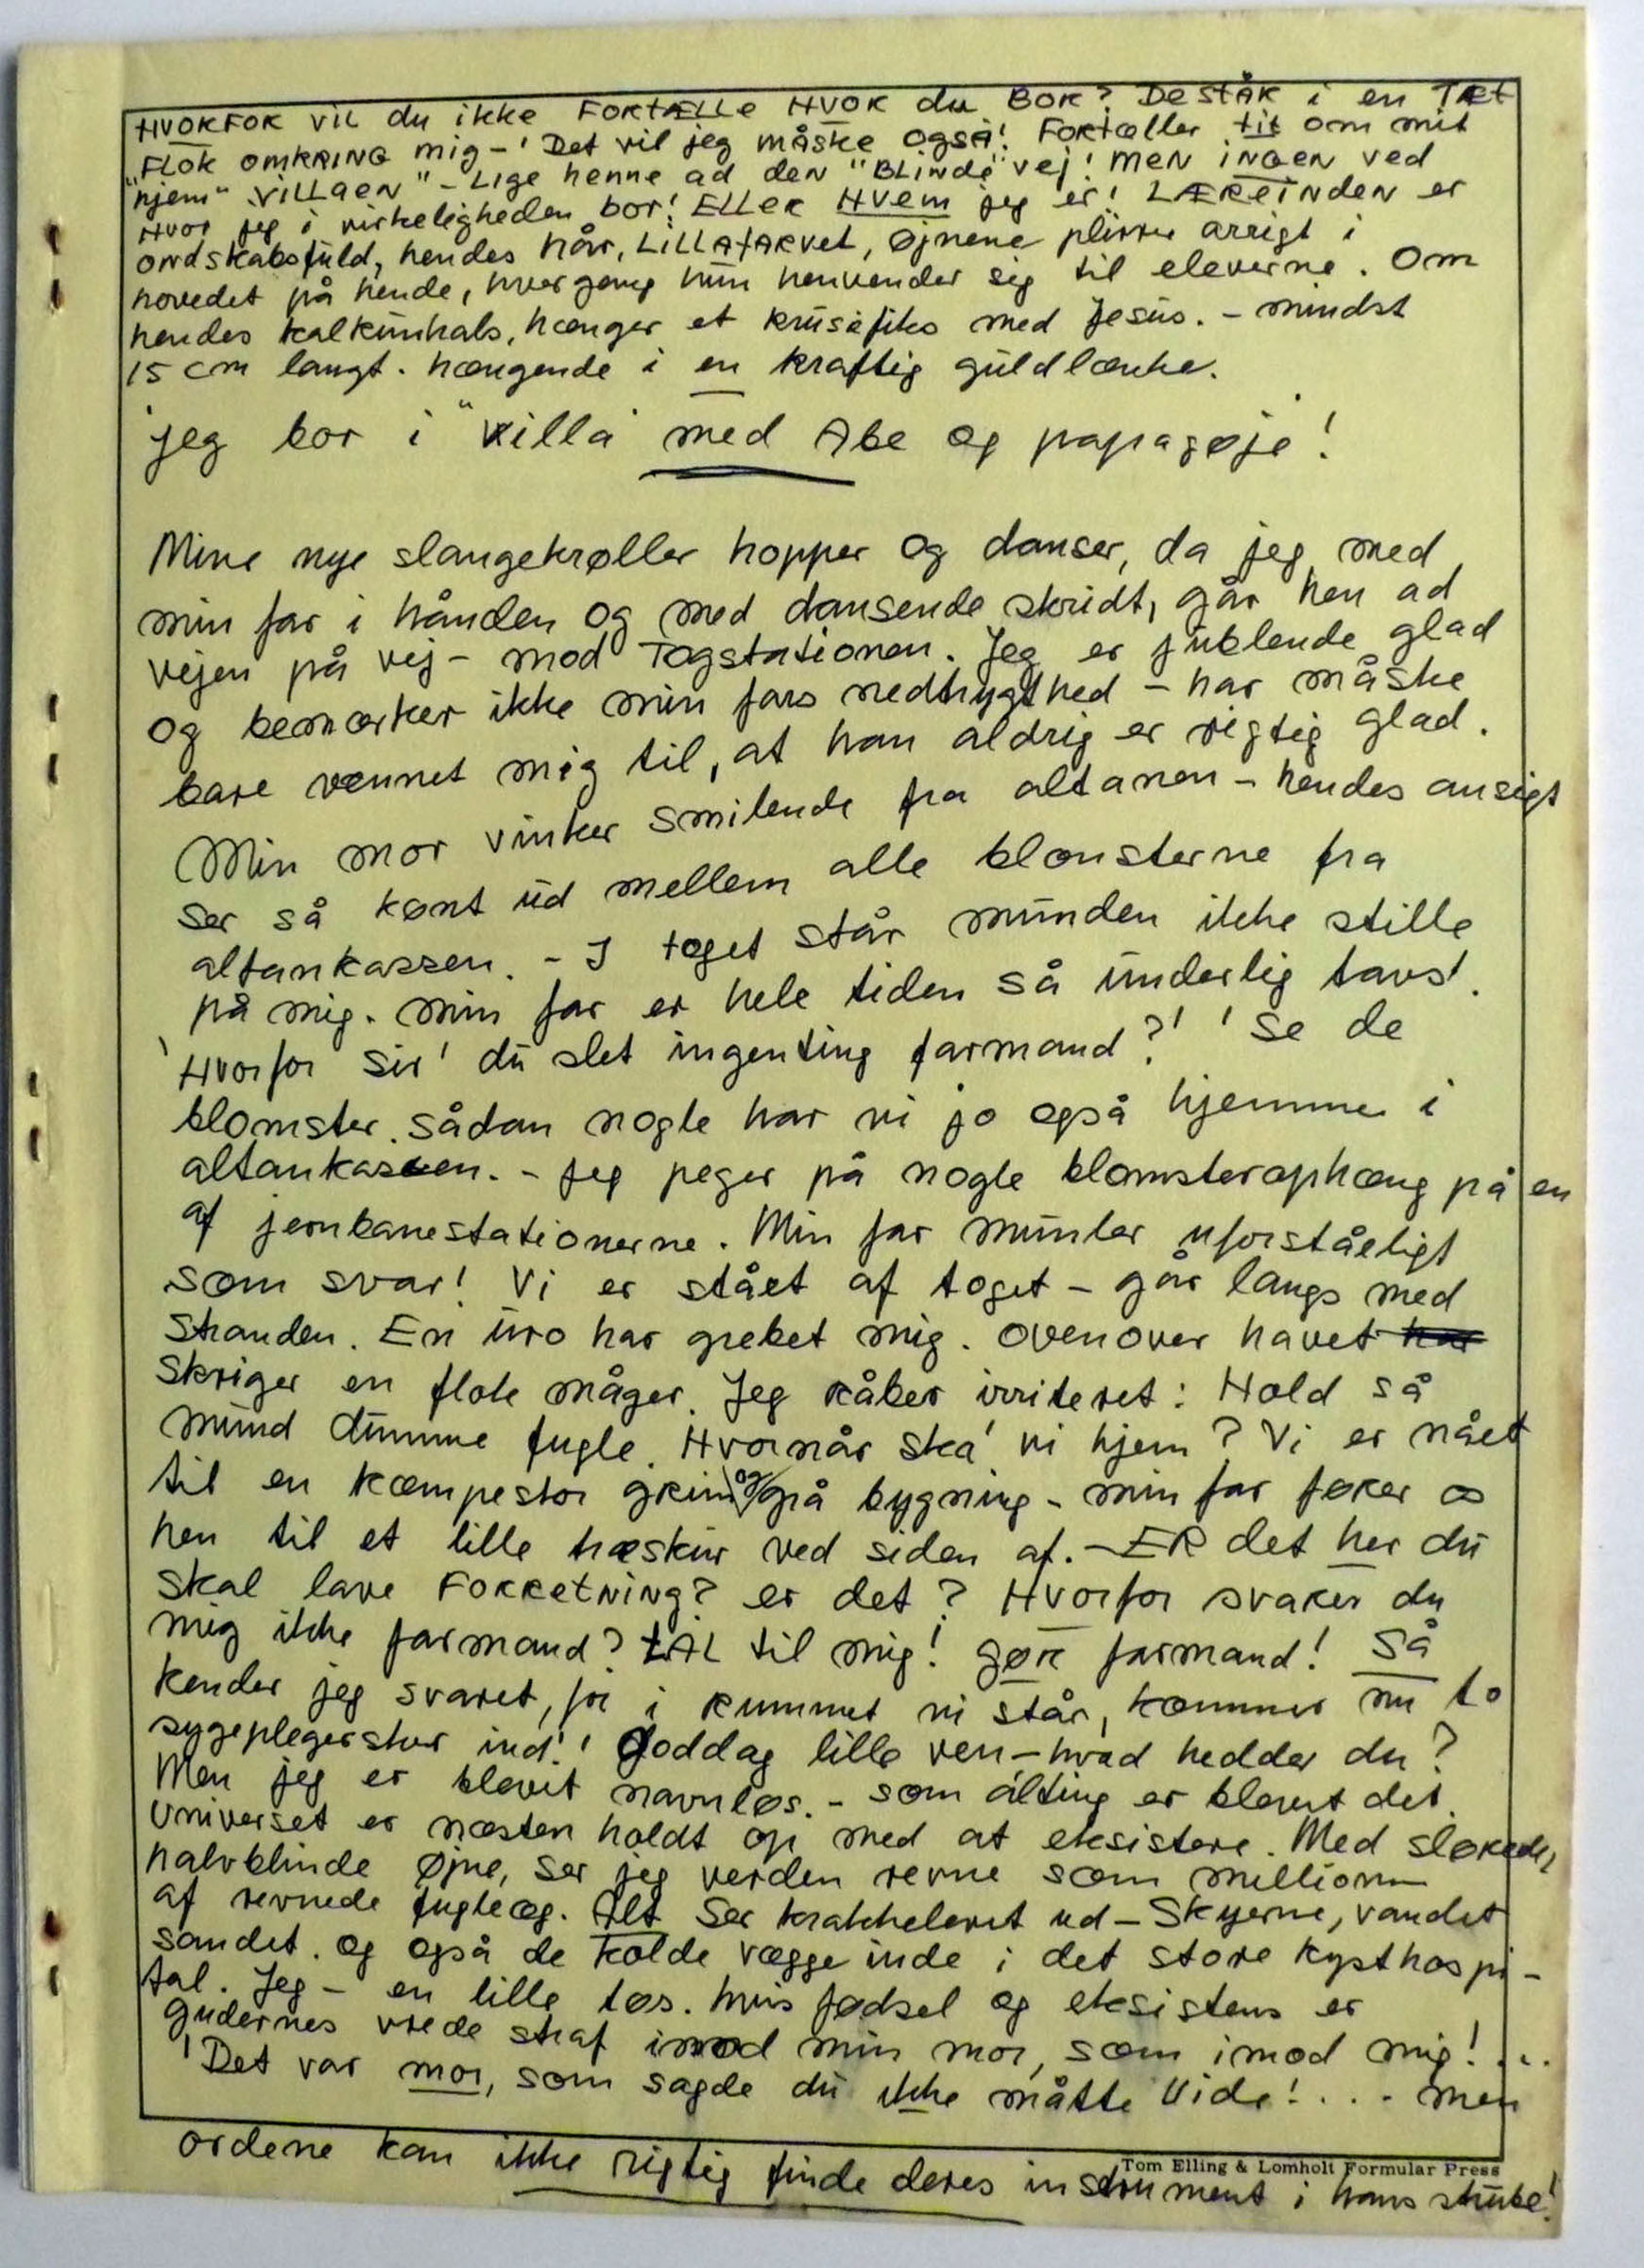 HVORFOR vil du ikke FORTÆLLE HVOR du BOR? De STÅR i en TÆT
FLOK OMKRING mig – ' Det vil jeg måske også! Fortæller tit om mit
"hjem" "VILLAEN" – Lige henne ad den "BLINDE" vej! MEN INGEN ved
HVOR jeg i virkeligheden bor! ELLER HVEM jeg er! LÆRERINDEN er
ondskabsfuld, hendes hår, LILLAFARVET, Øjnene plirrer arrigt i
hovedet på hende, hver gang hun henvender sig til eleverne. Om
hendes kalkunhals, hænger et krusifiks med Jesus. – mindst
15 cm langt. hængende i en kraftig guldlænke.
'jeg bor i "villa" med Abe og papagøje'!
Mine nye slangekrøller hopper og danser, da jeg med
min far i hånden og med dansende skridt, går hen ad
vejen på vej – mod Togstationen. Jeg er jublende glad
og bemærker ikke min fars nedtrygthed – har måske
bare vænnet mig til, at han aldrig er rigtig glad.
Min mor vinker smilende fra altanen – hendes ansigt
ser så kønt ud mellem alle blomsterne fra
altankassen. – I toget står munden ikke stille
på mig. min far er hele tiden så underlig tavs!
'Hvorfor sir' du slet ingenting farmand?' 'Se de
blomster. sådan nogle har vi jo også hjemme i
altankassen. – Jeg peger på nogle blomsterophæng på en
af jernbanestationerne. Min far mumler uforståeligt
som svar! Vi er stået af toget – går langs med
Stranden. En uro har grebet mig. ovenover havet har
skriger en flok måger. Jeg råber irriteret: Hold så
mund dumme fugle. Hvornår ska' vi hjem? Vi er nået
til en kæmpestor grim og grå bygning – min far fører os
hen til et lille træskur ved siden af. – ER det her du
skal lave FORRETNING? er det? Hvorfor svarer du
mig ikke farmand? TAL til mig! gør farmand! Så
kender jeg svaret, for i rummet vi står, kommer nu to
sygeplegersker ind! ' Goddag lille ven – hvad hedder du?
Men jeg er blevet navnløs. – som alting er blevet det.
Universet er næsten holdt op med at eksistere. Med slørede,
halvblinde øjne, ser jeg verden revne som millioner
af revnede fugleæg. Alt Ser krakkeleret ud – Skyerne, vandet
sandet. og også de kolde vægge inde i det store kysthospi-
tal. Jeg – en lille tøs. hvis fødsel og eksistens er
gudernes vrede straf imod min mor, som imod mig! ...
'Det var mor, som sagde du ikke måtte Vide! ... – men
ordene kan ikke rigtig finde deres instrument i hans strube!
Tom Elling & Lomholt Formular Press